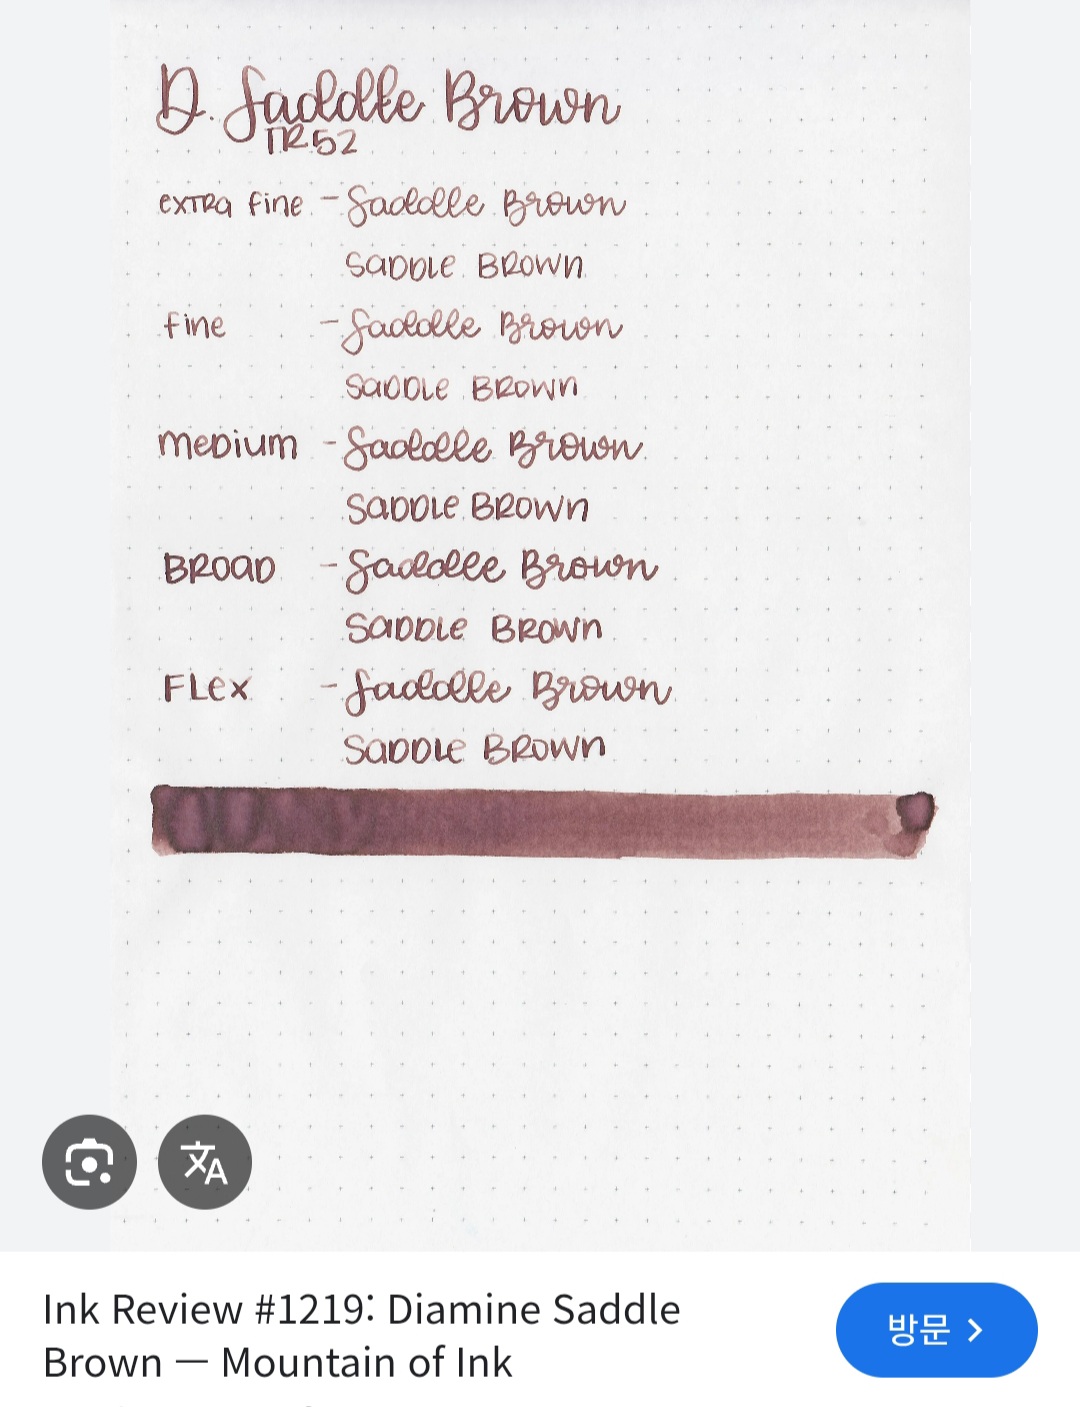 D. Saddle Brown
TR52
extra fine - Saddle Brown
Saddle Brown
fine - Saddle Brown
Saddle Brown
Medium - Saddle Brown
Saddle Brown
Broad - Saddle Brown
Saddle Brown
Flex - Saddle Brown
Saddle Brown
文A
Ink Review #1219: Diamine Saddle
Brown — Mountain of Ink
방문